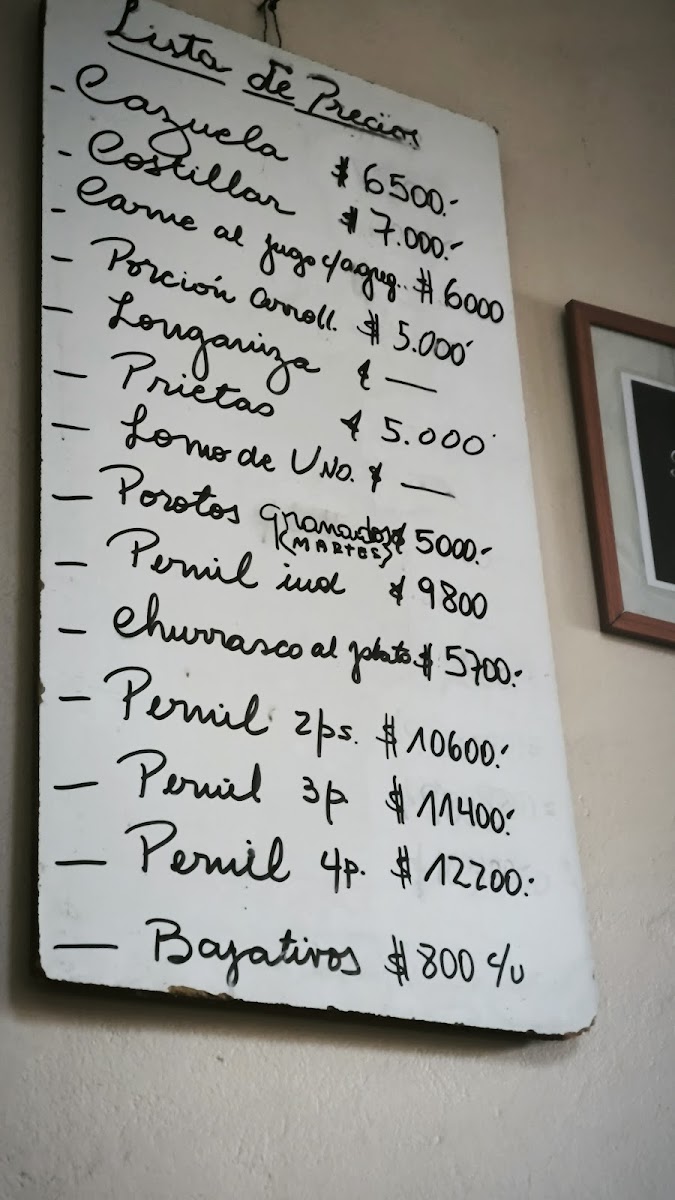 Lista de Precios
- Cazuela $ 6500.-
- Costillar $ 7.000.-
- Carne al jugo c/agreg. $ 6000
- Porción arroll. $ 5.000
- Longaniza $ —
- Prietas $ 5.000
- Lomo de UNO. $ —
- Porotos Granados $ 5000.-
(MARTES)
- Pernil ind $ 9800
- Churrasco al plato $ 5700.-
- Pernil 2ps. $ 10600.-
- Pernil 3p. $ 11400.-
- Pernil 4p. $ 12200.-
- Bajativos $ 800 c/u